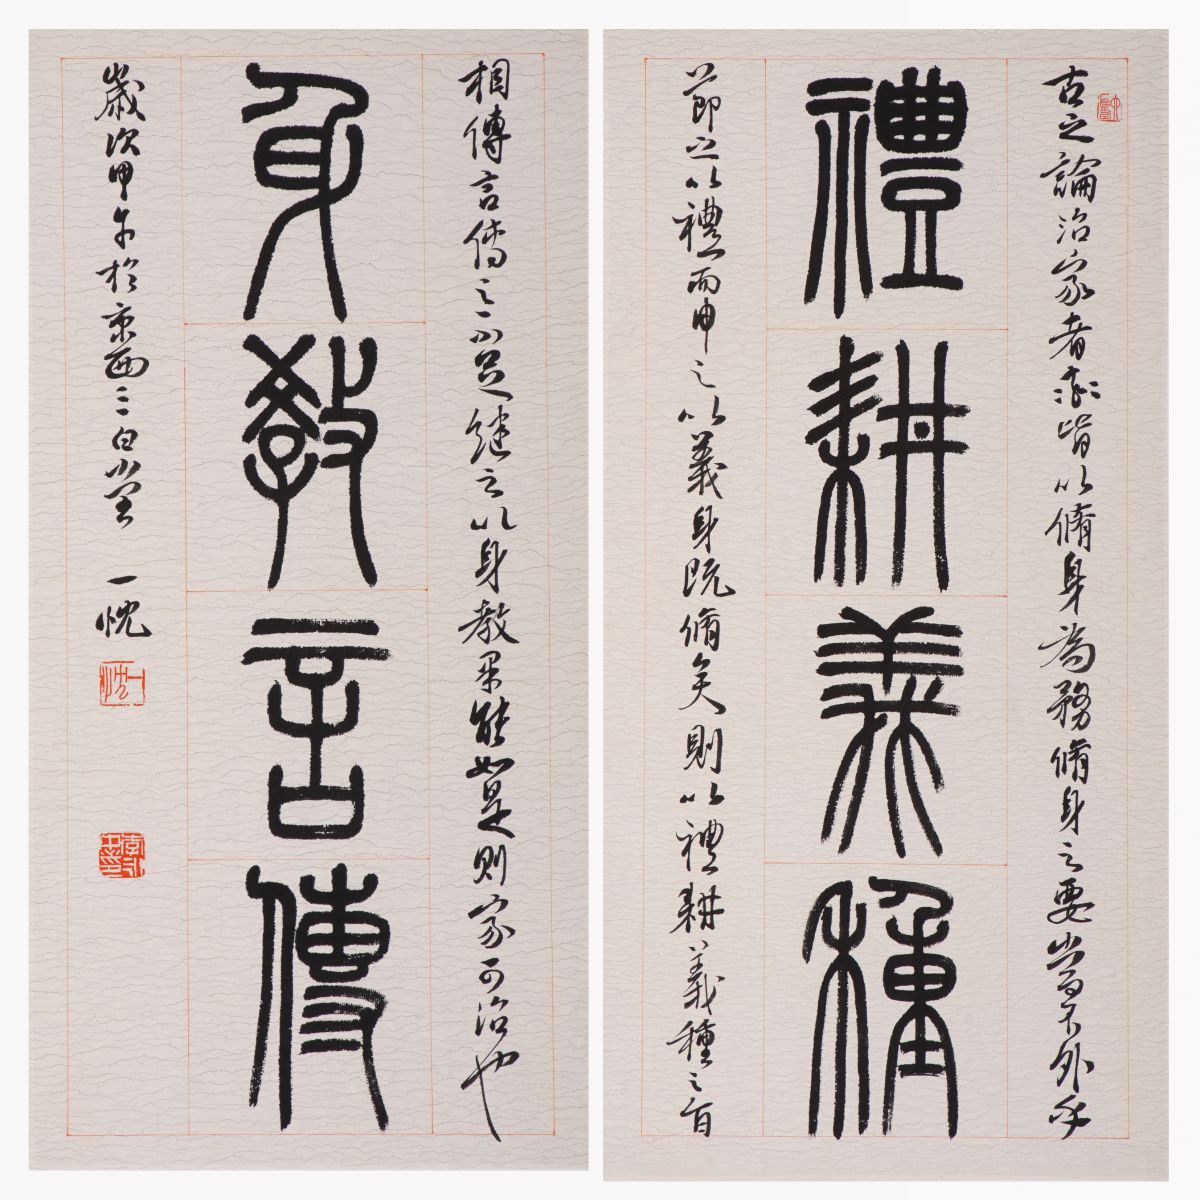 禮耕義種
古之論治家者亦皆以脩身為務脩身之要當不外乎
節之以禮而申之以義身既脩矣則以禮耕義種之旨
身教言傳
相傳言傳之不足繼之以身教果能如是則家可治也
歲次甲午於京西三白堂 一忱